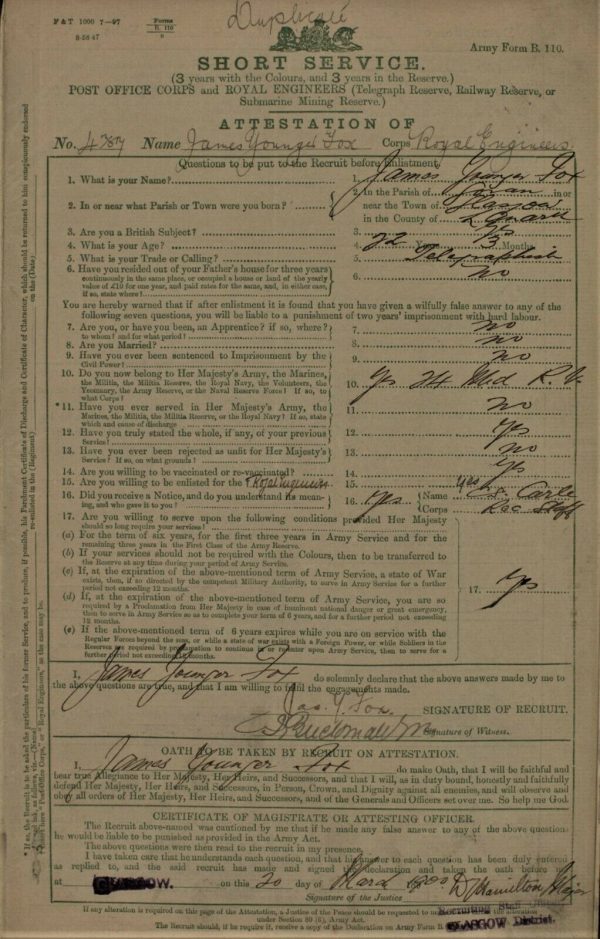 F & T 1000 7—97 Forms B. 110
8-58 47
Duplicate
Army Form B. 110.
SHORT SERVICE.
(3 years with the Colours, and 3 years in the Reserve.)
POST OFFICE CORPS and ROYAL ENGINEERS (Telegraph Reserve, Railway Reserve, or
Submarine Mining Reserve.)
ATTESTATION OF
No. Name James Younger Fox Corps Royal Engineers
Questions to be put to the Recruit before Enlistment.
1. What is your Name? 1. James Younger Fox
2. In or near what Parish or Town were you born? 2. In the Parish of Govan in or
near the Town of Glasgow
in the County of Lanark
3. Are you a British Subject? 3. Yes
4. What is your Age? 4. 22 Years 3 Months
5. What is your Trade or Calling? 5. Telegraphist
6. Have you resided out of your Father's house for three years
continuously in the same place, or occupied a house or land of the yearly
value of £10 for one year, and paid rates for the same, and, in either case,
if so, state where? 6. No
You are hereby warned that if after enlistment it is found that you have given a wilfully false answer to any of the
following seven questions, you will be liable to a punishment of two years' imprisonment with hard labour.
7. Are you, or have you been, an Apprentice? if so, where?
to whom? and for what period? 7. no
8. Are you Married? 8. no
9. Have you ever been sentenced to Imprisonment by the
Civil Power? 9. no
10. Do you now belong to Her Majesty's Army, the Marines,
the Militia, the Militia Reserve, the Royal Navy, the Volunteers, the
Yeomanry, the Army Reserve, or the Naval Reserve Force? If so, to
what Corps? 10. Yes R. V.
*11. Have you ever served in Her Majesty's Army, the
Marines, the Militia, the Militia Reserve, or the Royal Navy? If so, state
which and cause of discharge 11. no
12. Have you truly stated the whole, if any, of your previous
Service? 12. Yes
13. Have you ever been rejected as unfit for Her Majesty's
Service? If so, on what grounds? 13. no
14. Are you willing to be vaccinated or re-vaccinated? 14. Yes
15. Are you willing to be enlisted for the Royal Engineers 15. Yes
16. Did you receive a Notice, and do you understand its mean-
ing, and who gave it to you? 16. Yes Name
Corps Rec Staff
17. Are you willing to serve upon the following conditions provided Her Majesty
should so long require your services?
(a) For the term of six years, for the first three years in Army Service and for the
remaining three years in the First Class of the Army Reserve.
(b) If your services should not be required with the Colours, then to be transferred to
the Reserve at any time during your period of Army Service.
(c) If, at the expiration of the above-mentioned term of Army Service, a state of War
exists, then, if so directed by the competent Military Authority, to serve in Army Service for a further
period not exceeding 12 months.
17. Yes
(d) If, at the expiration of the above-mentioned term of Army Service, you are so
required by a Proclamation from Her Majesty in case of imminent national danger or great emergency,
then to serve in Army Service so as to complete your term of 6 years, and for a further period not exceeding
12 months.
(e) If the above-mentioned term of 6 years expires while you are on service with the
Regular Forces beyond the seas, or while a state of war exists with a Foreign Power, or while Soldiers in the
Reserve are required by proclamation to continue in or re-enter upon Army Service, then to serve for a
further period not exceeding 12 months.
I, James Younger Fox do solemnly declare that the above answers made by me to
the above questions are true, and that I am willing to fulfil the engagements made.
Jas. Y. Fox SIGNATURE OF RECRUIT.
Signature of Witness.
OATH TO BE TAKEN BY RECRUIT ON ATTESTATION.
I, James Younger Fox do make Oath, that I will be faithful and
bear true Allegiance to Her Majesty, Her Heirs, and Successors, and that I will, as in duty bound, honestly and faithfully
defend Her Majesty, Her Heirs, and Successors, in Person, Crown, and Dignity against all enemies, and will observe and
obey all orders of Her Majesty, Her Heirs, and Successors, and of the Generals and Officers set over me. So help me God.
CERTIFICATE OF MAGISTRATE OR ATTESTING OFFICER.
The Recruit above-named was cautioned by me that if he made any false answer to any of the above questions
he would be liable to be punished as provided in the Army Act.
The above questions were then read to the recruit in my presence.
I have taken care that he understands each question, and that his answer to each question has been duly entered
as replied to, and the said recruit has made and signed the declaration and taken the oath before me
at GLASGOW. on this 20 day of March 1900
Signature of the Justice D Hamilton Major
Recruiting Staff
GLASGOW District.
If any alteration is required on this page of the Attestation, a Justice of the Peace should be requested to make the alteration
under Section 80 (6), Army Act.
The Recruit should, if he require it, receive a copy of the Declaration on Army Form B.